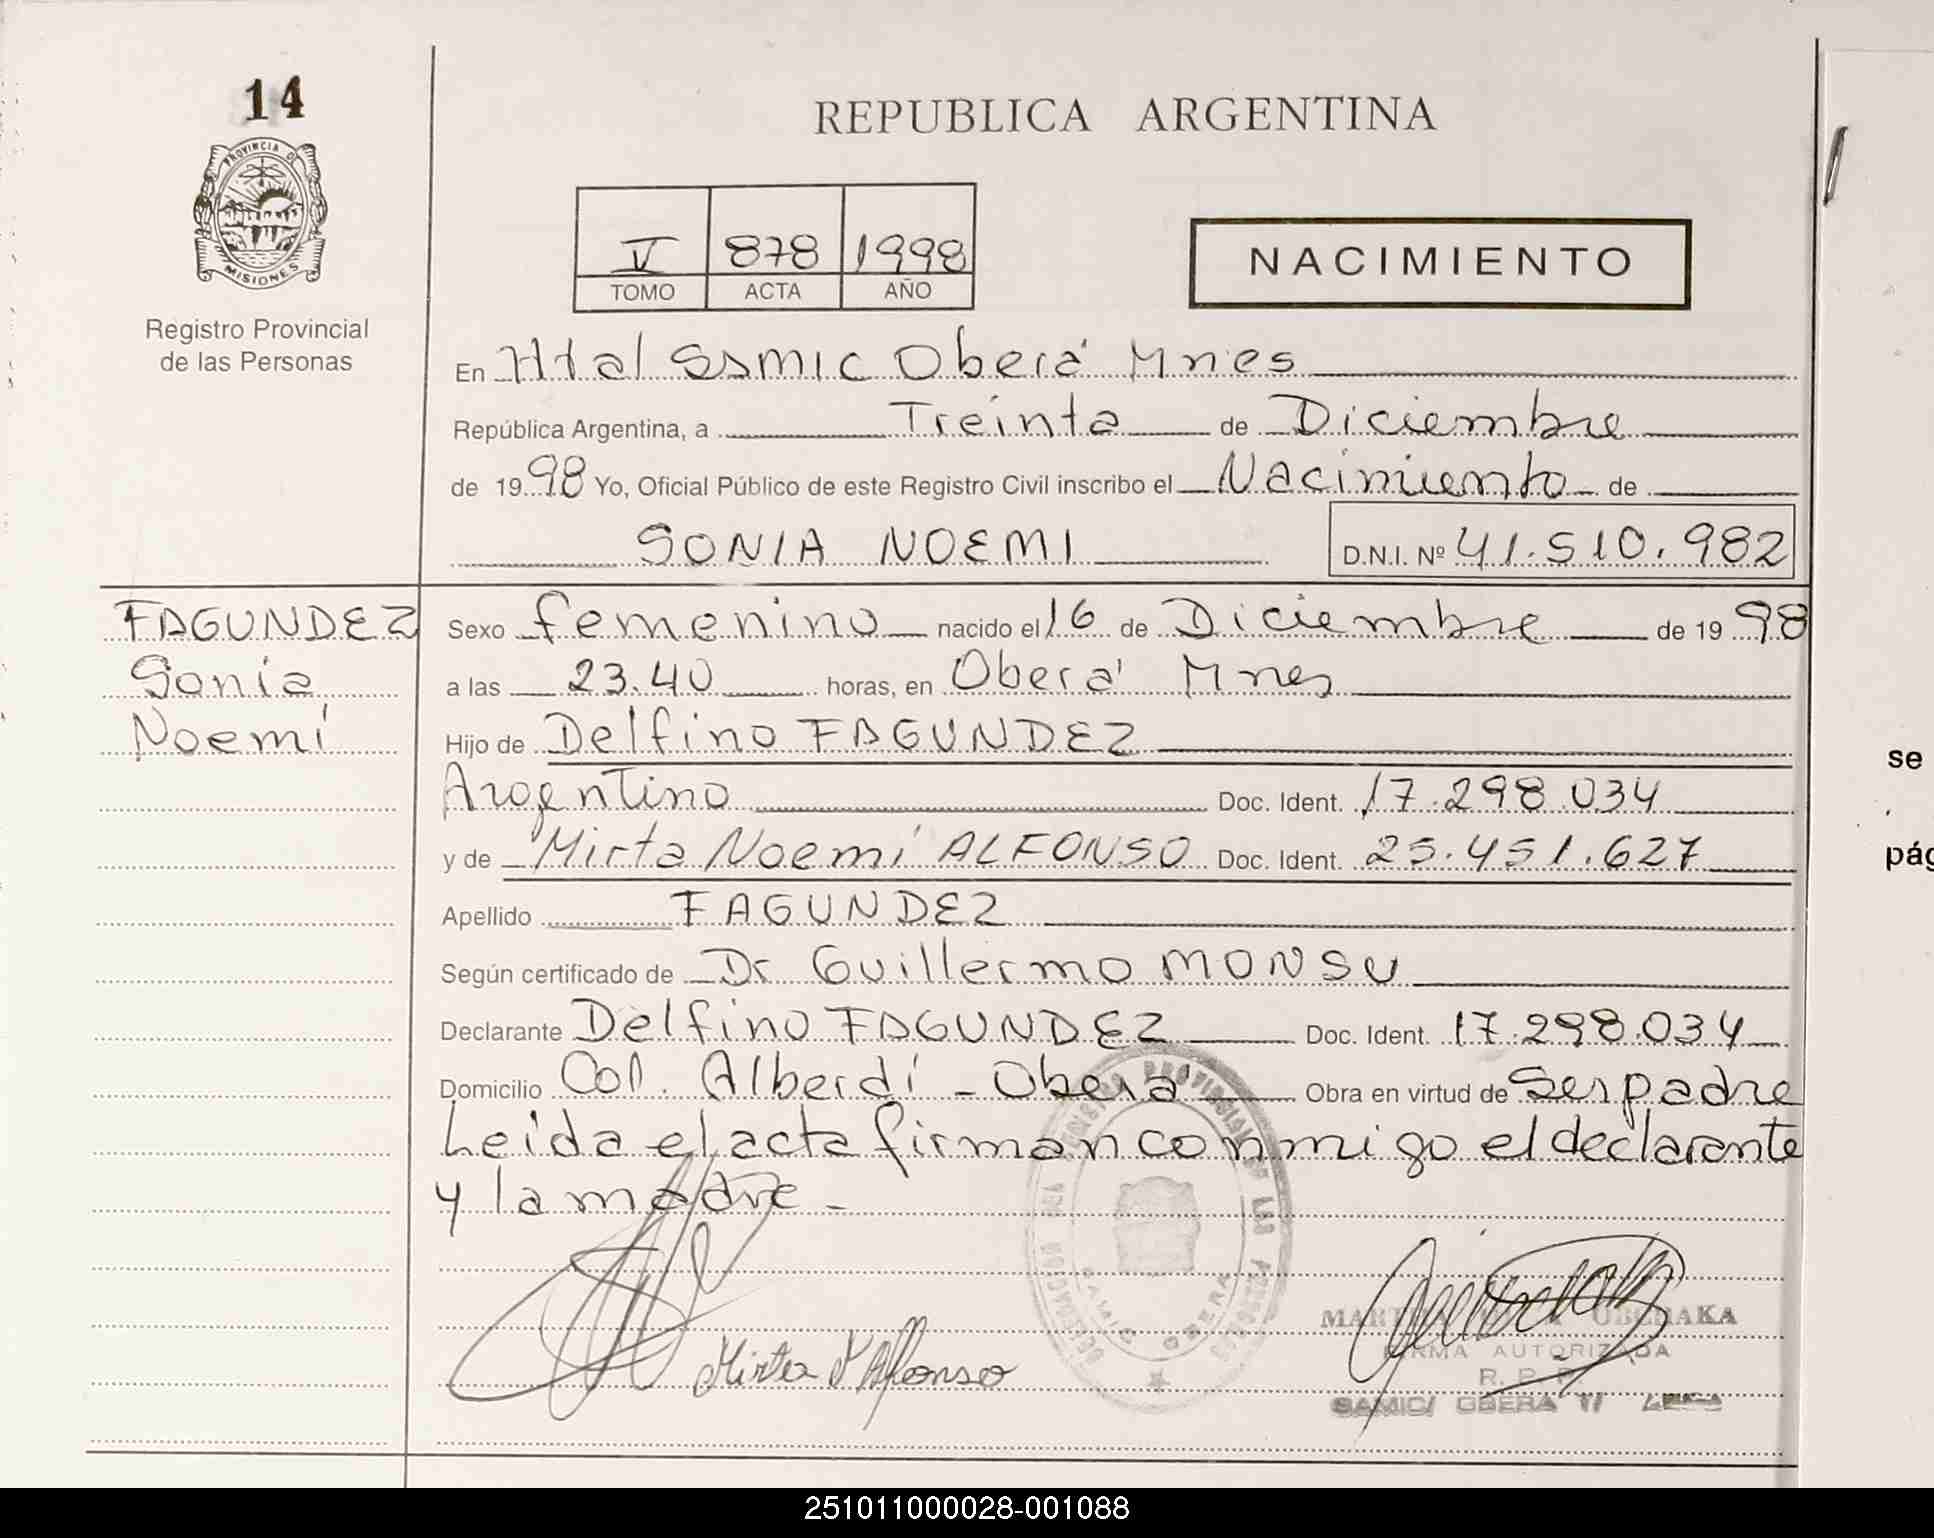 14
PROVINCIA DE
MISIONES
Registro Provincial
de las Personas
REPUBLICA ARGENTINA
V 878 1998
TOMO ACTA AÑO
NACIMIENTO
En Htal Ssmic Oberá Mnes
República Argentina, a Treinta de Diciembre
de 1998 Yo, Oficial Público de este Registro Civil inscribo el Nacimiento de
SONIA NOEMI D.N.I. Nº 41.510.982
FAGUNDEZ
Sonia
Noemí
Sexo femenino nacido el 16 de Diciembre de 1998
a las 23.40 horas, en Oberá Mnes
Hijo de Delfino FAGUNDEZ
Argentino Doc. Ident. 17.298.034
y de Mirta Noemí ALFONSO Doc. Ident. 25.451.627
Apellido FAGUNDEZ
Según certificado de Dr Guillermo MONSU
Declarante Delfino FAGUNDEZ Doc. Ident. 17.298.034
Domicilio Col. Alberdi - Oberá Obra en virtud de Ser padre
Leida el acta firman conmigo el declarante
y la madre -
Mirta N Alfonso
FIRMA AUTORIZADA
R. P. P.
SAMIC/ OBERA
se
pág
251011000028-001088